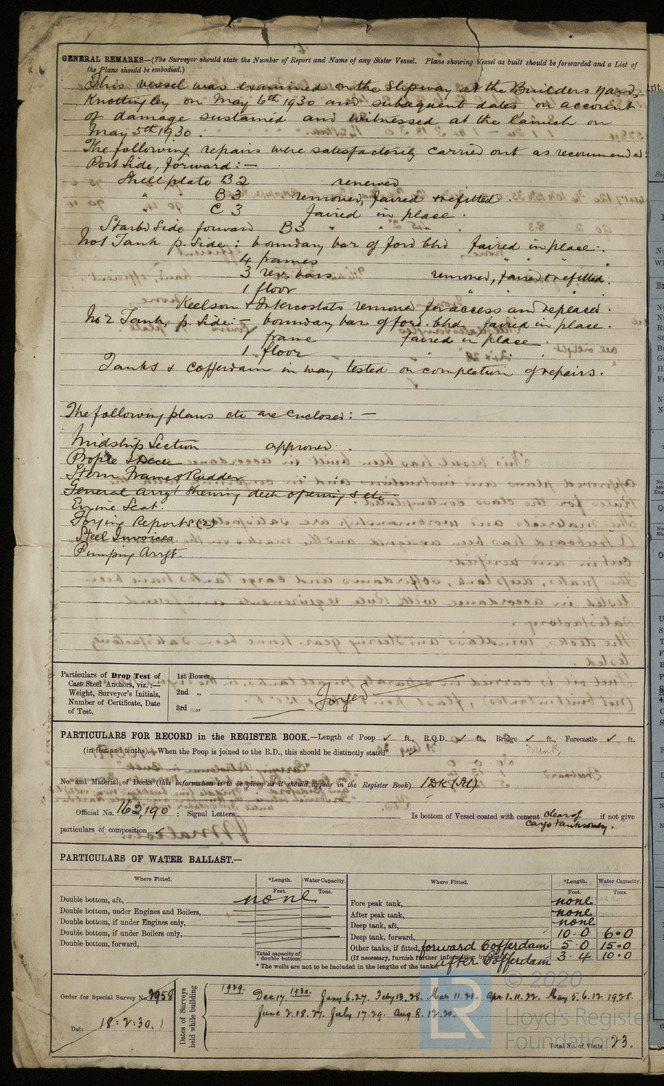 GENERAL REMARKS—(The Surveyor should state the Number of Report and Name of any Sister Vessel. Plans showing Vessel as built should be forwarded and a List of
the Plans should be embodied.)
This vessel was examined on the Slipway at the Builders Yard,
Knottingley on May 6th 1930 and subsequent dates on account
of damage sustained and witnessed at the launch on
May 5th 1930.
The following repairs were satisfactorily carried out as recommended:
Port Side, forward:—
Shell plate B2 renewed
" B3 removed, faired & refitted.
" C3 faired in place.
Starbd Side forward B3 " " "
No1 Tank p. Side: boundary bar of ford bhd faired in place.
4 frames " " "
3 rev. bars removed, faired & refitted.
1 floor " " "
Keelson & Intercostals removed for access and replaced.
No 2 Tank, p. Side:— boundary bar of ford. bhd. faired in place.
1 frame faired in place
1 floor " " "
Tanks & Cofferdam in way tested on completion of repairs.
The following plans etc are enclosed:—
Midship Section approved.
Profile & Deck
Stern Frame & Rudder
General Arrgt shewing deck openings etc
Engine Seat.
Forging Reports (2)
Steel Invoices
Pumping Arrgt.
Particulars of Drop Test of
Cast Steel Anchors, viz.:—
Weight, Surveyor's Initials,
Number of Certificate, Date
of Test.
1st Bower
2nd "
3rd "
Forged
PARTICULARS FOR RECORD in the REGISTER BOOK.—Length of Poop ✓ ft., R.Q.D. ✓ ft., Bridge ✓ ft., Forecastle ✓ ft.
(in feet and tenths). When the Poop is joined to the B.D., this should be distinctly stated
Trunk
No. and Material of Decks (this information is to be given as it should appear in the Register Book) 1DK (Stl)
Official No. 162,190 ; Signal Letters
Is bottom of Vessel coated with cement clear of cargo tanks only. if not give
particulars of composition
PARTICULARS OF WATER BALLAST.—
Where Fitted. *Length. Water Capacity. Where Fitted. *Length. Water Capacity.
Feet. Tons. Feet. Tons.
Double bottom, aft, none
Double bottom, under Engines and Boilers,
Double bottom, if under Engines only,
Double bottom, if under Boilers only,
Double bottom, forward,
Total capacity of double bottom
Fore peak tank, none
After peak tank, none
Deep tank, aft, none
Deep tank, forward, 10.0 6.0
Other tanks, if fitted, forward Cofferdam 5.0 15.0
(If necessary, furnish further information by sketch) after Cofferdam 3.4 10.0
* The wells are not to be included in the lengths of the tanks
Order for Special Survey No. 2958
Date 18.2.30.
Dates of Surveys held while building
1929. Dec 17. 1930. Jany 6.27. Feby 13.28. Mar 11.21. Apr 1.11.22. May 5.6.12.19.28.
June 2.18.27. July 17.29. Aug 8.12.20.
Total No. of Visits 23.
LR
© 2020
Lloyd's Register
Foundation